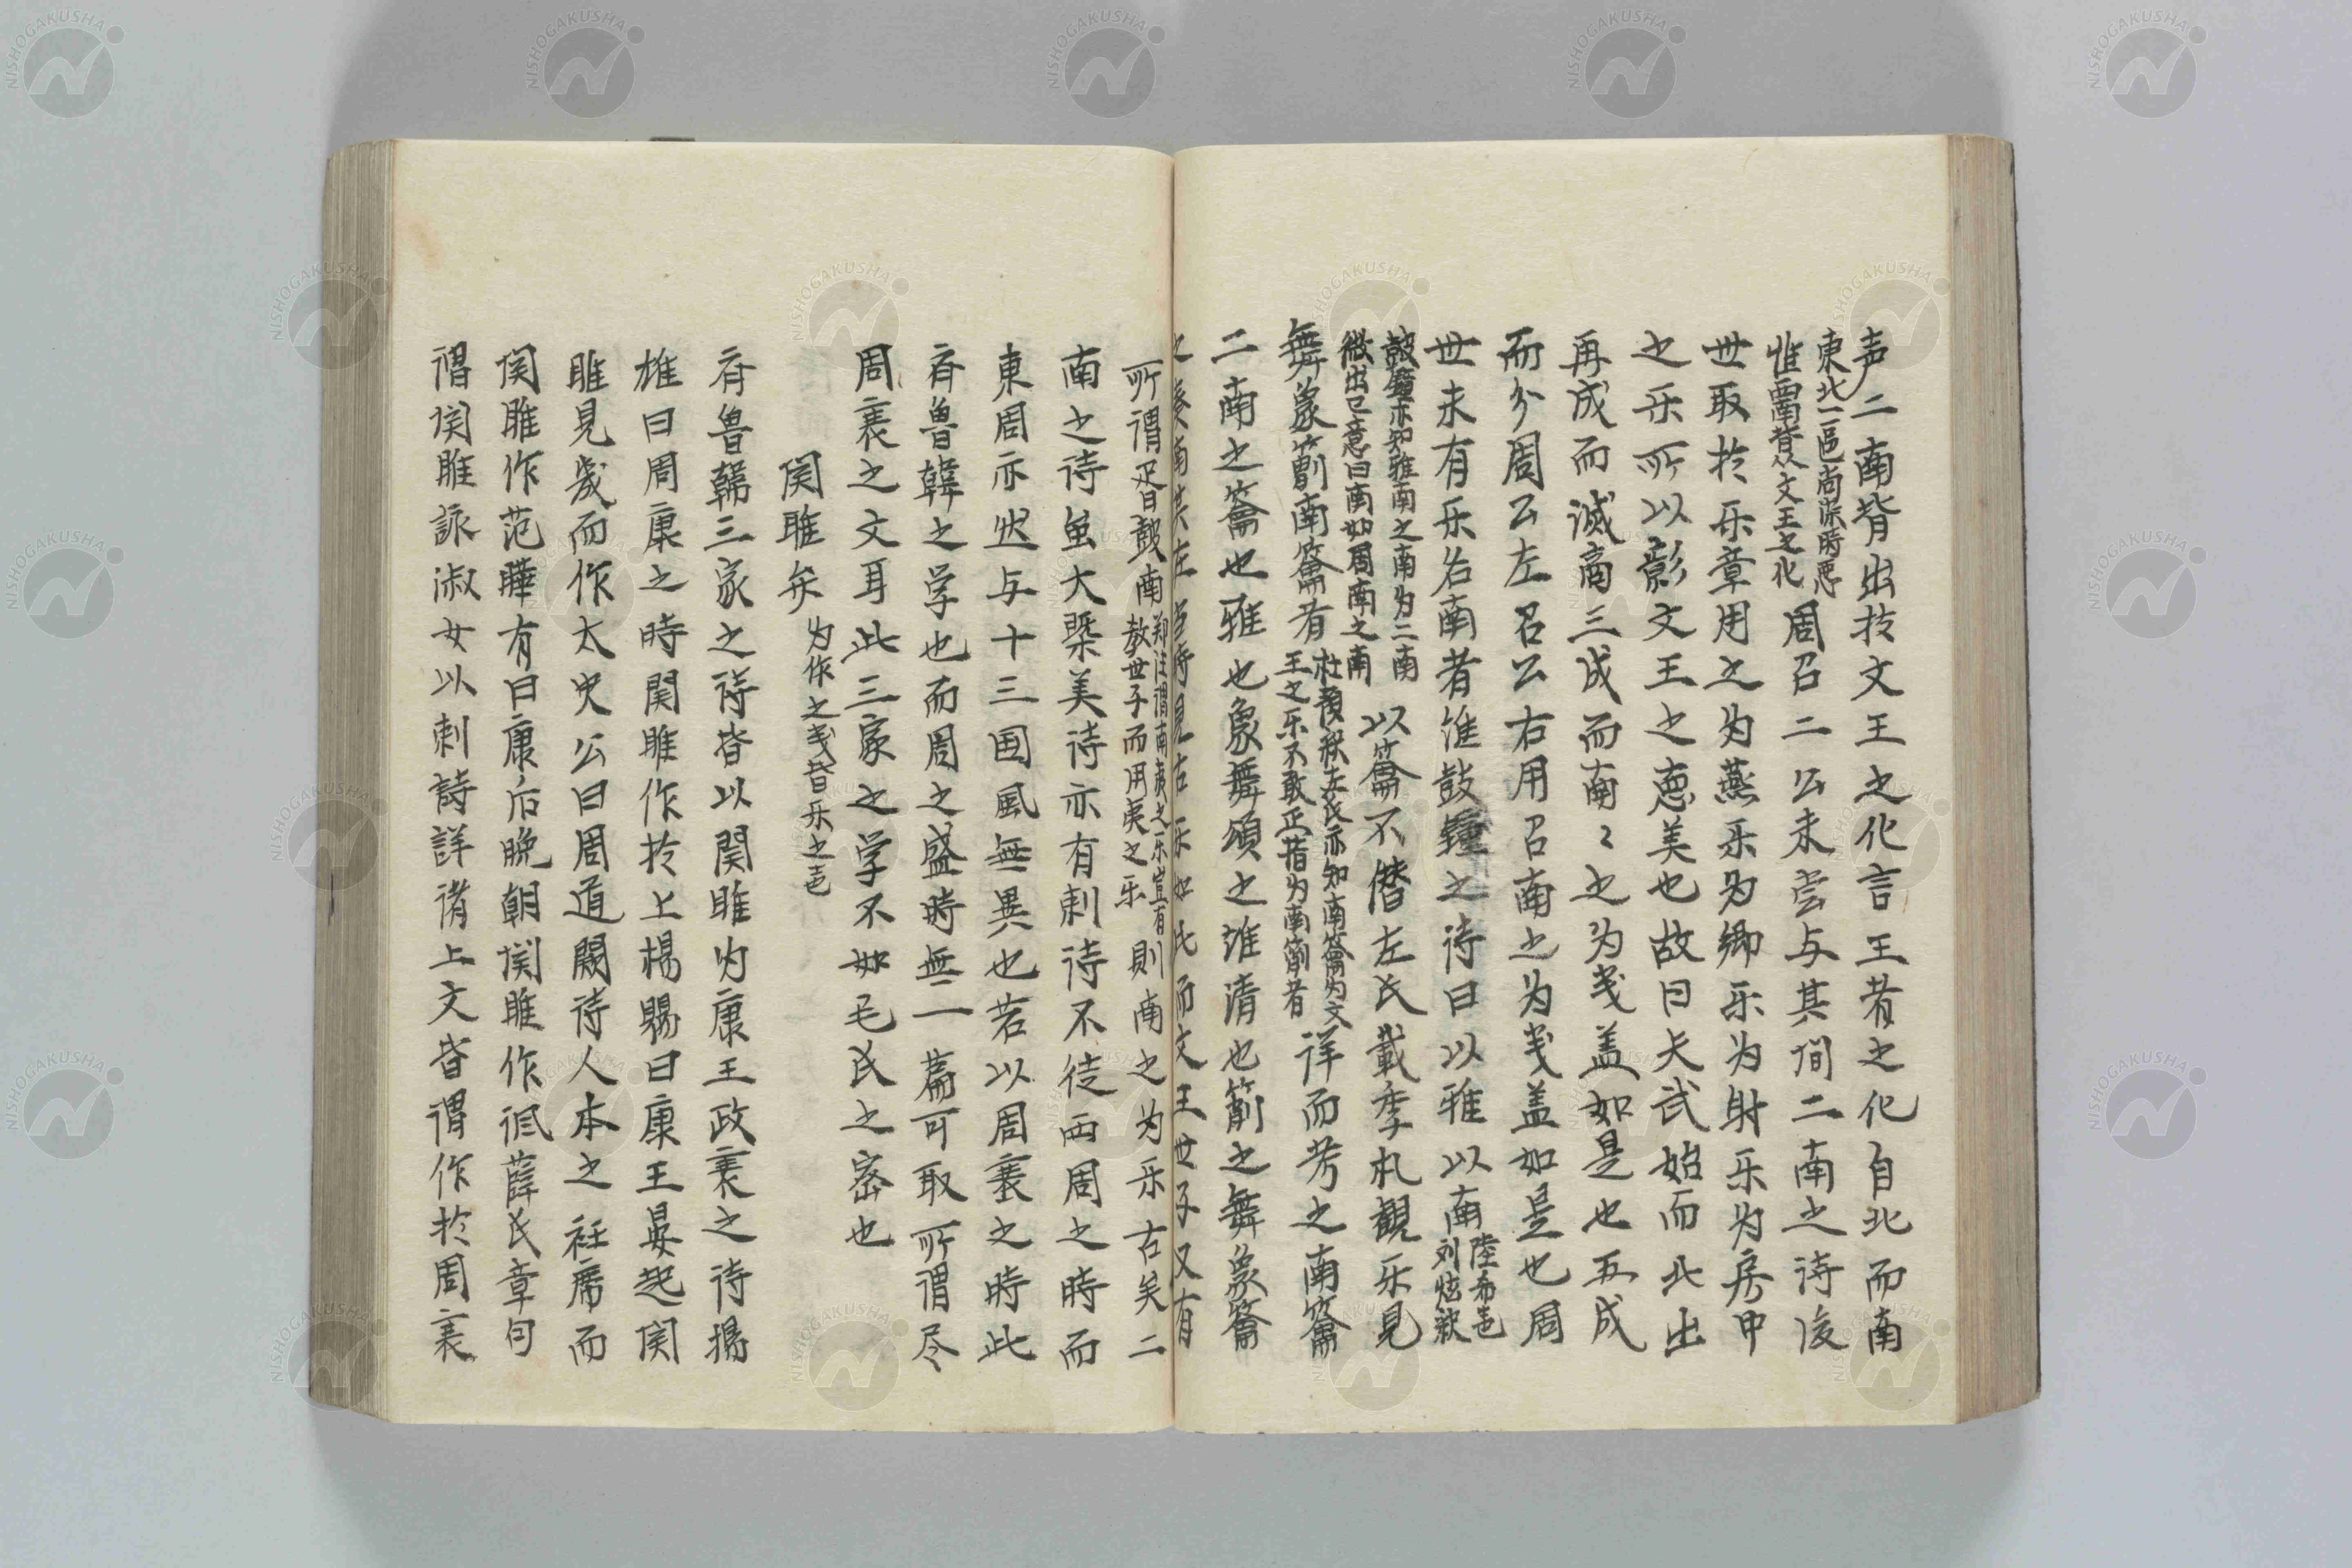 声二南皆出於文王之化言王者之化自北而南
東北一區尚染時悪
惟南皆从文王之化
周召二公未尝与其间二南之诗後
世取於乐章用之为燕乐为鄉乐为射乐为房中
之乐所以彰文王之悳美也故曰大武始而北出
再成而滅商三成而南〻之为戋盖如是也五成
而分周公左召公右用召南之为戋盖如是也周
世未有乐名南者谁鼓鐘之诗曰以雅以南
陸希吉
刘炫釈
鼓鐘亦知雅南之南为二南
微出己意曰南如周南之南
以籥不僭左氏載季札觀乐見
舞象箾南籥者
杜預釈左氏亦知南籥为文
王之乐不敢正指为南箾者
详而考之南籥
二南之籥也雅也象舞頌之谁清也箾之舞象籥
之奏南其在當時見古乐如此而文王世子又有
所谓胥鼓南
郑注谓南夷之乐豈有
教世子而用夷之乐
則南之为乐古矣二
南之诗虽大槩美诗亦有刺诗不徒西周之時而
東周亦然与十三国風無異也若以周衰之時此
斉魯韓之学也而周之盛時無一篇可取所谓尽
周衰之文耳此三家之学不如毛氏之密也
関雎弁
为作之戋皆乐之声
斉魯韓三家之诗皆以関雎为康王政衰之诗揚
雄曰周康之時関雎作於上楊賜曰康王晏起関
雎見幾而作太史公曰周道闕诗人本之衽席而
関雎作范曄有曰康后晩朝関雎作诋薛氏章句
謂関雎詠淑女以刺詩詳諸上文皆谓作於周衰